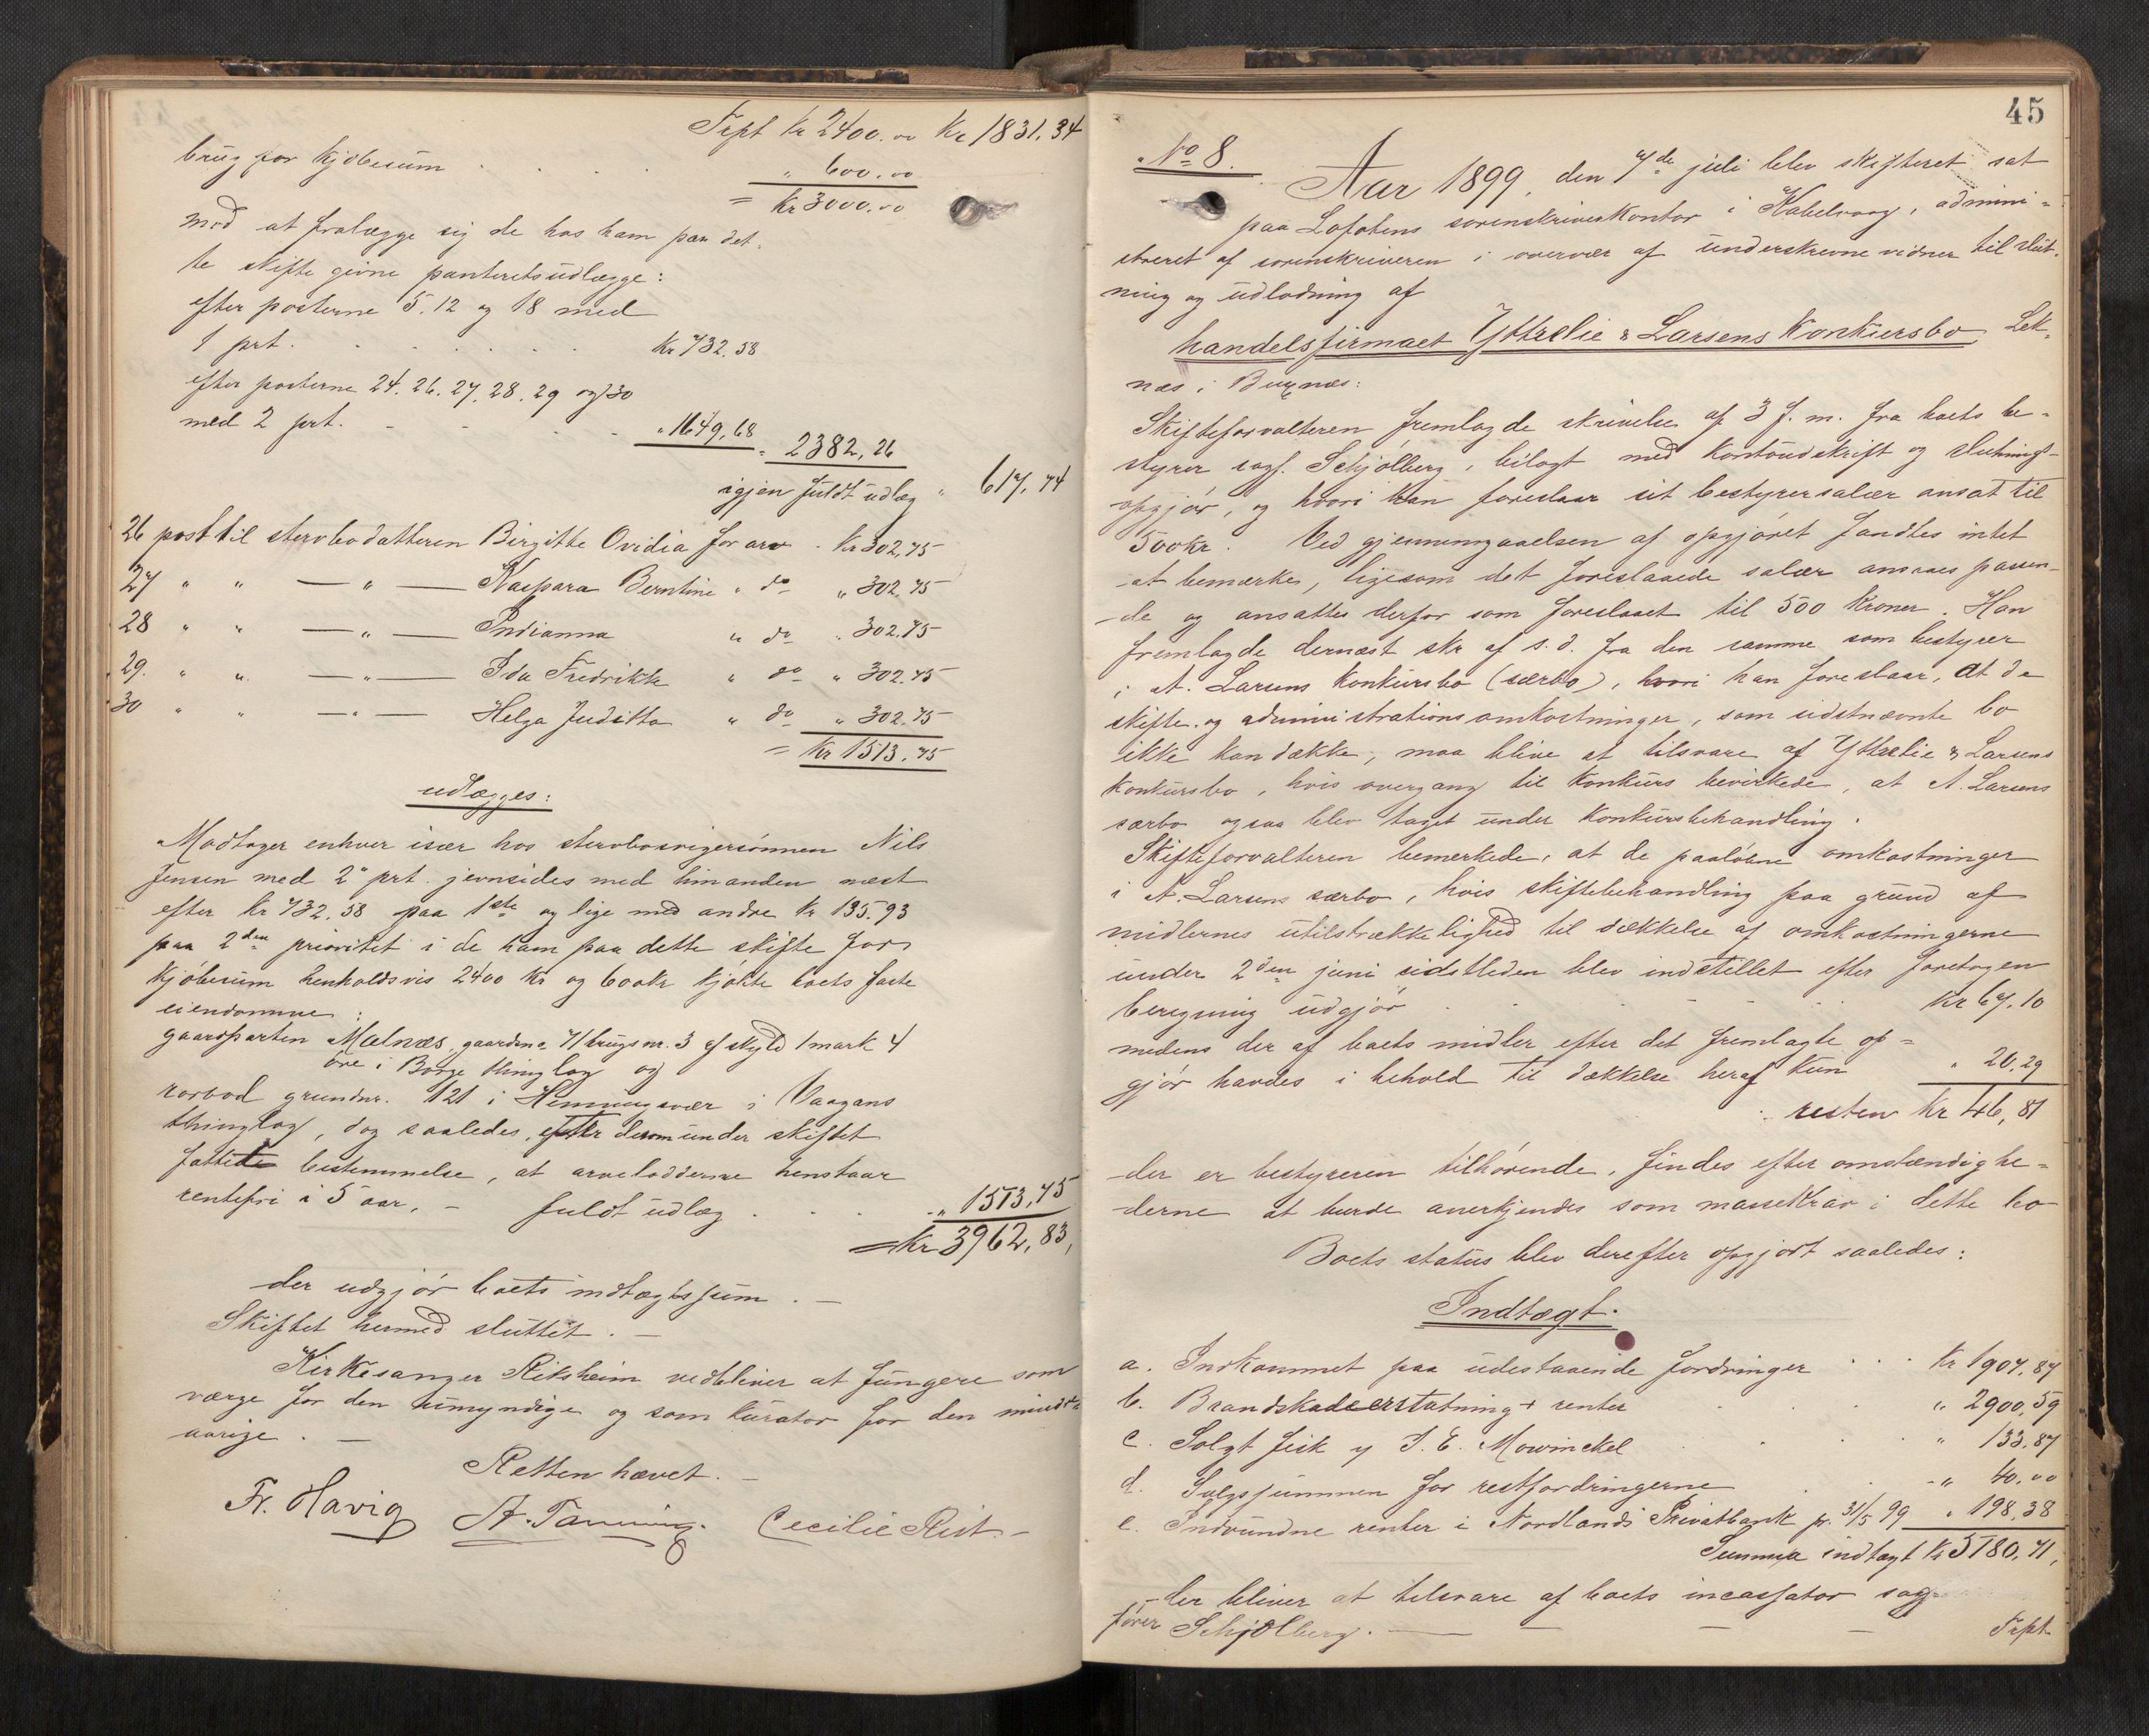 Trpt Kr 2400.00 Kr 1831.34
brug for kjøbesum . . . . " 600.00
= Kr 3000.00
mod at fralægge sig de hos ham paa det-
te skifte givne panteretsudlægge:
efter posterne 5. 12 og 18 med
1 prt. . . . . . . Kr 732.58
efter posterne 24. 26. 27. 28. 29 og 30
med 2 prt. - - - - " 1649,68 = 2382,26
igjen fuldt udlæg " 617,74
26 post til stervbodatteren Birgitte Ovidia for arv . Kr 302,75
27 " " — " — Kaspara Berntine " do " 302.75
28 " " — " — Indianna " do " 302.75
29. " " — " — Ida Fredrikke " do " 302.75
30 " " — " — Helga Juditta " do " 302.75
= Kr 1513.75
udlægges:
Modtager enhver især hos stervbosvigersønnen Nils
Jensen med 2" prt. jevnsides med hinanden næst
efter Kr 732.58 paa 1ste og lige med andre Kr 135.93
paa 2den prioritet i de ham paa dette skifte for
kjøbesum henholdsvis 2400 Kr og 600 Kr kjøbte boets faste
eiendomme:
gaardparten Malnæs, gaardsn. 71 brugsnr. 3 af skyld 1 mark 4
øre i Borge thinglag og
rorbod grundnr. 121 i Henningsvær i Vaagans
thinglag, dog saaledes, efter den under skiftet
fattede bestemmelse, at arvelodderne henstaar
rentefri i 5 aar, - fuldt udlæg . . . " 1513,75
= Kr 3962,83,
der udgjør boets indtægtssum . —
Skiftet hermed sluttet . —
Kirkesanger Riksheim vedbliver at fungere som
værge for den umyndige og som kurator for den mindre-
aarige . —
Retten hævet. —
Fr. Havig A. Tanning. Cecilie Rist. —
45
No 8. Aar 1899, den 7de juli blev skifteret sat
paa Lofotens sorenskriverkontor i Kabelvaag, admini-
streret af sorenskriveren i overvær af underskrevne vidner til slut-
ning og udlodning af
handelsfirmaet Yttrelie & Larsens Konkursbo, Lek-
næs i Buxnæs:
Skifteforvalteren fremlagde skrivelse af 3 f. m. fra boets be-
styrer sagf. Schjølberg, bilagt med kontoudskrift og slutnings-
opgjør, og hvori han foreslaar sit bestyrersalær ansat til
500 kr. Ved gjennemgaaelsen af opgjøret fandtes intet
at bemærke, ligesom det foreslaaede salær ansaaes passen-
de og ansattes derfor som foreslaaet til 500 Kroner. Han
fremlagde dernæst skr af s. d. fra den samme som bestyrer
i A. Larsens konkursbo (særbo), hvori han foreslaar, at de
skifte- og administrationsomkostninger, som sidstnævnte bo
ikke kan dække, maa blive at tilsvare af Yttrelie & Larsens
konkursbo, hvis overgang til konkurs bevirkede, at A. Larsens
særbo ogsaa blev taget under konkursbehandling.
Skifteforvalteren bemerkede, at de paaløbne omkostninger
i A. Larsens særbo, hvis skiftebehandling paa grund af
midlernes utilstrækkelighed til dækkelse af omkostningerne
under 2den juni sidstleden blev indstillet efter foretagen
beregning udgjør . . . . . Kr 67.10
medens der af boets midler efter det fremlagte op=
gjør havdes i behold til dækkelse heraf kun " 20,29
resten Kr 46,81
der er bestyreren tilhørende, findes efter omstændighe-
derne at burde anerkjendes som massekrav i dette bo
Boets status blev derefter opgjort saaledes:
Indtægt.
a. Indkommet paa udestaaende fordringer . . . Kr 1907,87
b. Brandskadeerstatning + renter . . . " 2900,59
c. Solgt fisk y J. E. Mowinckel . . . " 133.87
d. Salgssummen for restfordringerne . . " 40.00
e. Indvundne renter i Nordlands Privatbank pr. 31/5 99 " 198,38
Summa indtægt Kr 5180,71,
der bliver at tilsvare af boets incassator sag-
fører Schjølberg. — — — — Trpt